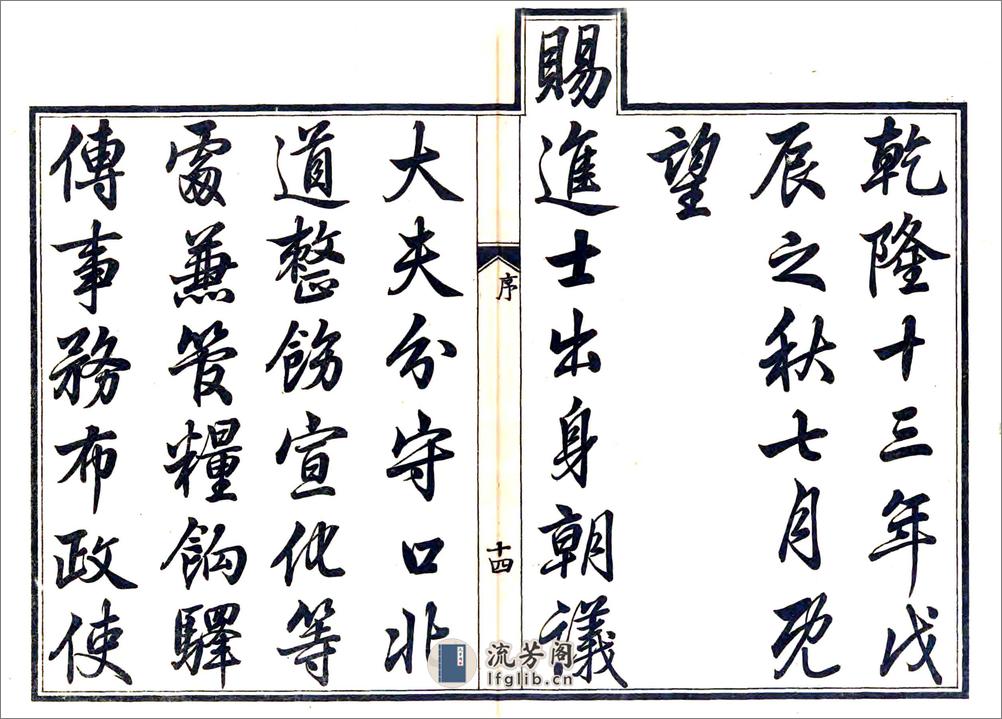 乾隆十三年戊
辰之秋七月既
望
賜進士出身朝議
大夫分守口北
道整飭宣化等
處兼管糧餉驛
傳事務布政使
序
十四
流芳阁
lfglib.cn